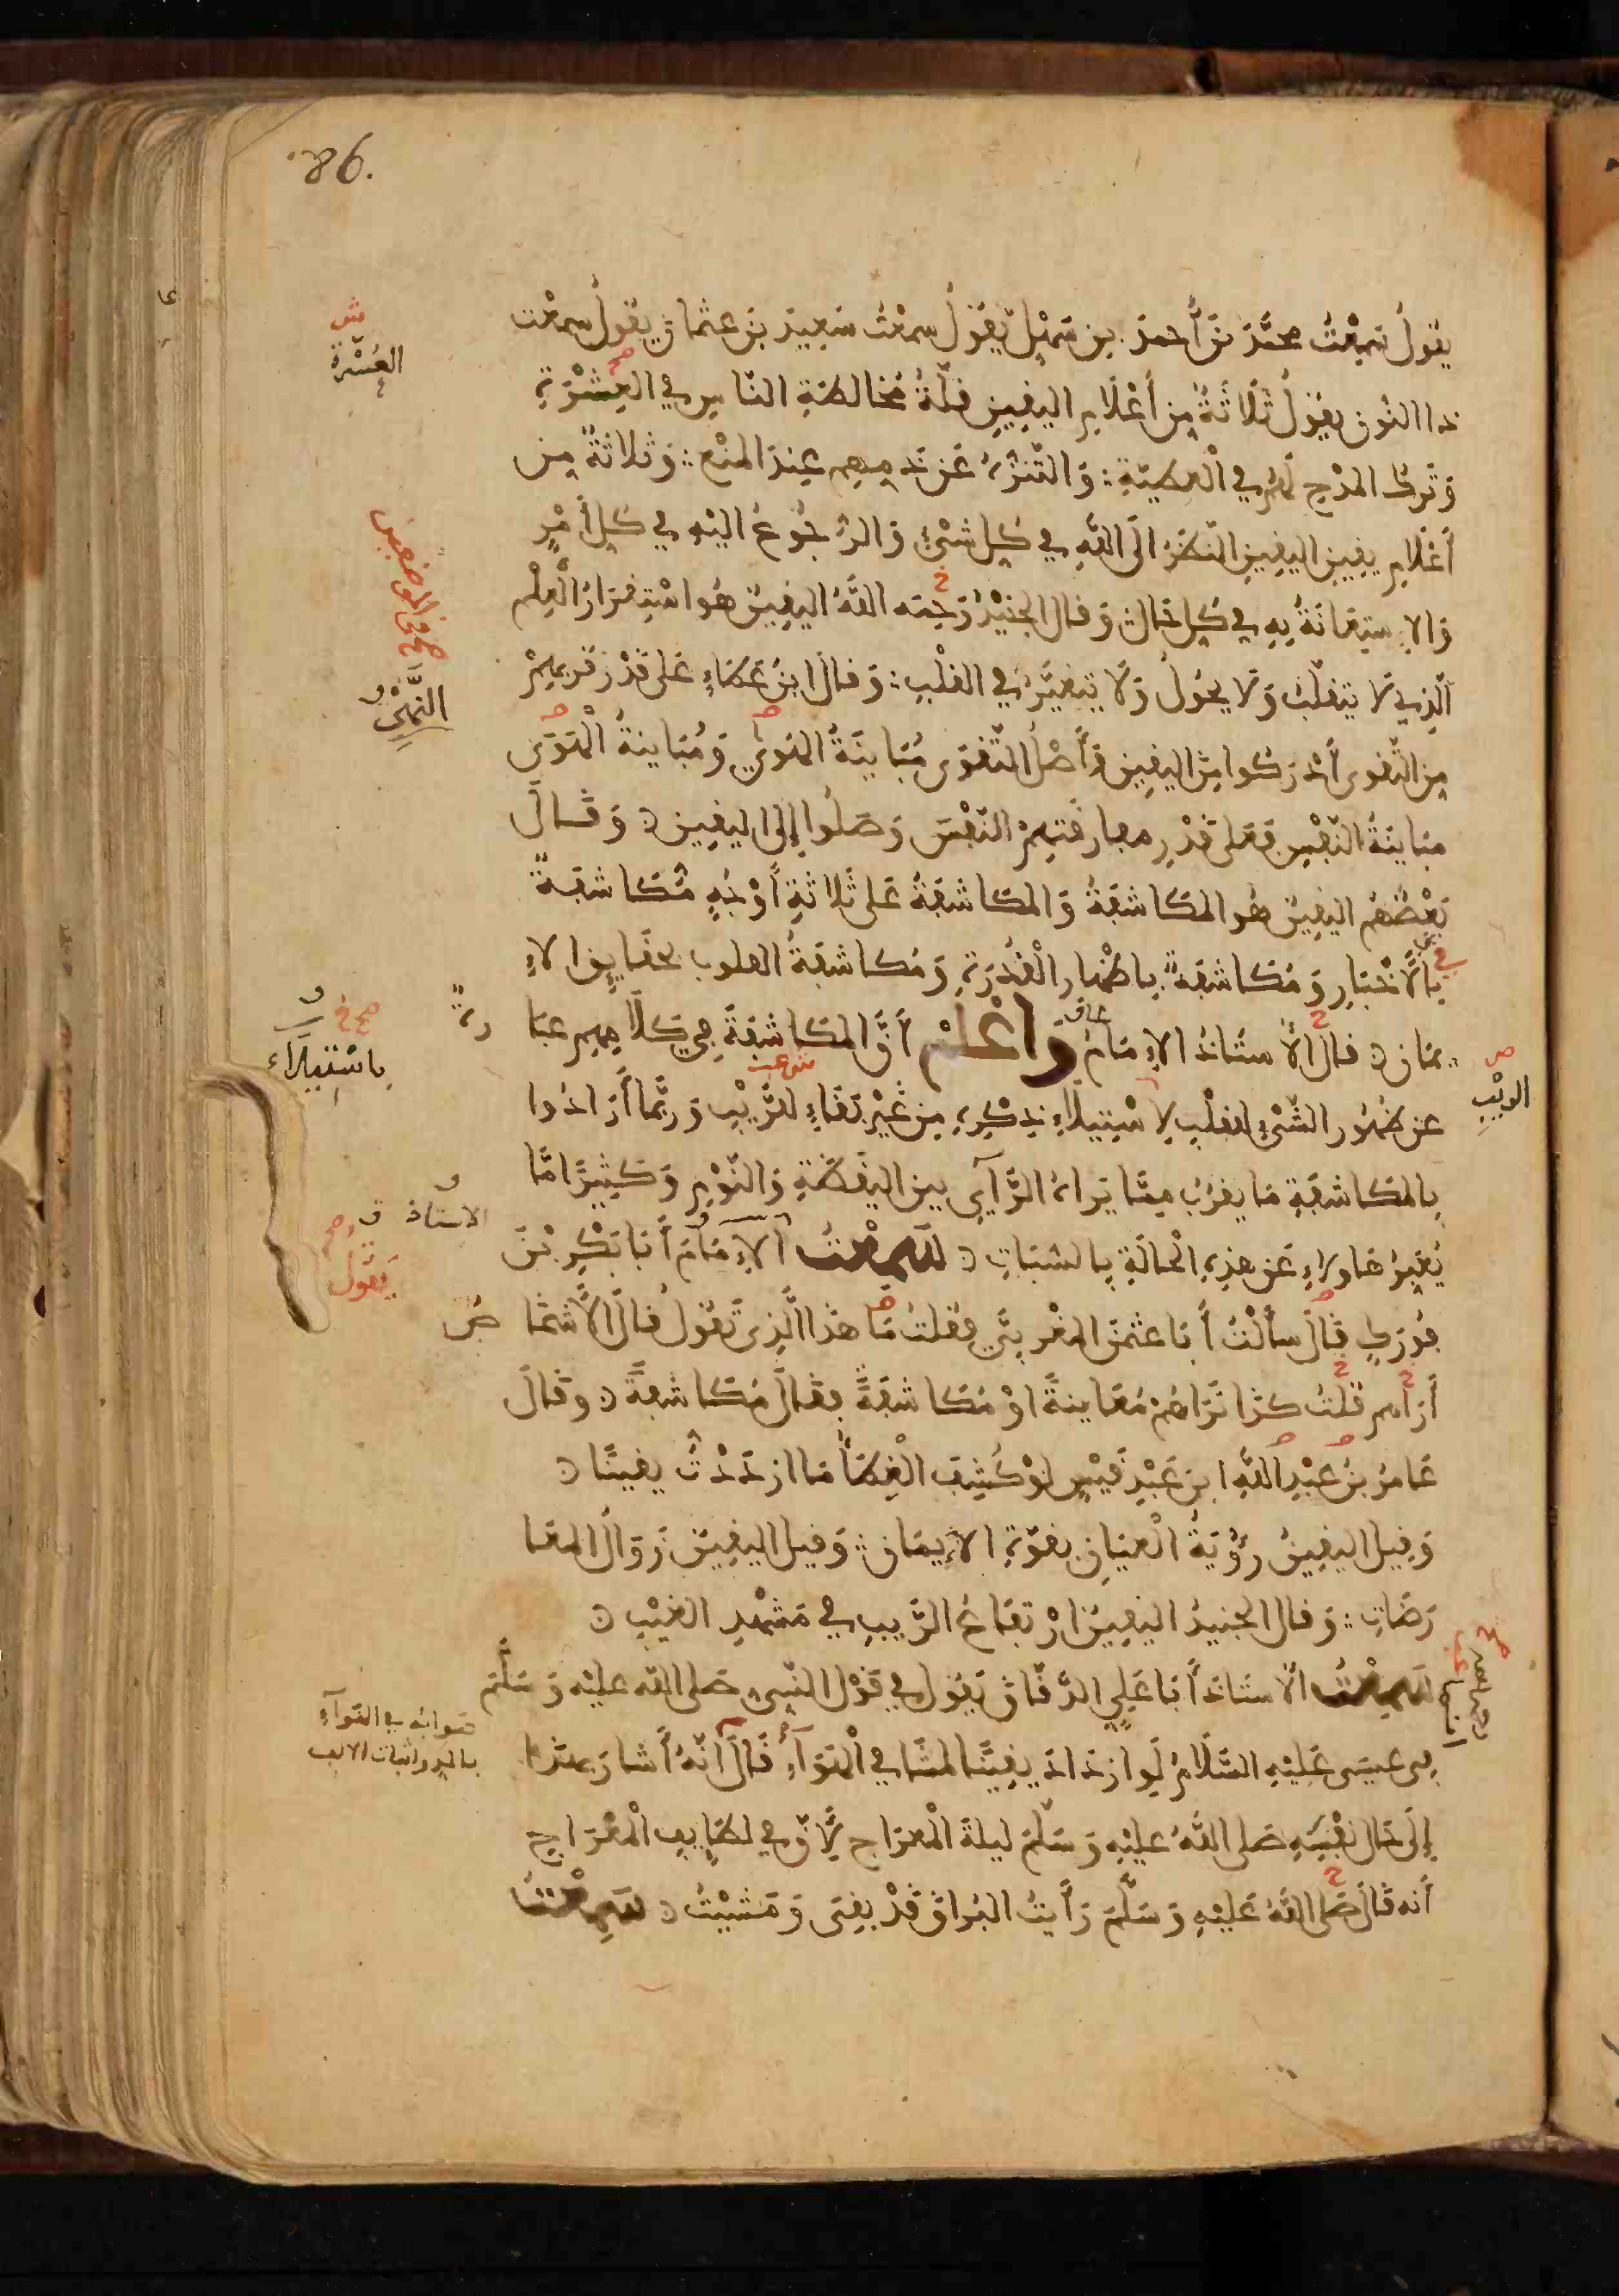 86.
يَقُولُ سَمِعْتُ محمَّدَ بْنَ أَحمدَ بن سَهْلٍ يَقُولُ سَمِعْتُ سَعِيدَ بْنَ عثمانَ يقولُ سمعْت
ذا النون يقولُ ثَلَاثَةٌ مِن أَعْلَامِ اليقينِ قلَّةُ مُخالطةِ الناسِ في العِشْرَةِ
وَتَركُ المدْحِ لهم في الْعطيَّةِ : وَالتَّنزُّهُ عَن ذَمِّهِم عِندَ المنْعِ : وَثلاثةٌ مِن
أَعْلامِ يقينِ اليقينِ النَّظَرُ الَى اللهِ في كلِّ شَيْءٍ وَالرُّجُوعُ اليْهِ في كلِّ أمْرٍ
وَالاِستِعانَةُ بِهِ في كلِّ حَالٍ وَقال الجنَيْدُ رَحِمَه اللهُ اليقِينُ هُوَ اسْتِقرَارُ الْعِلْمِ
الَّذِي لَا يَنقلِبُ وَلَا يحُولُ وَلَا يتغَيَّرُ في القلْبِ : وَقال ابنُ عَطاءٍ عَلى قَدْرِ قُربِهِمْ
مِن التَّقوى أدْرَكُوا مِن اليقينِ وَأَصْلُ التَّقوَى مُبَاينَةُ النهي وَمُبَاينةُ النهى
مبَاينَةُ النَّفْسِ فعَلى قَدْرِ مفارقتِهِمْ النَّفْسَ وَصَلُوا إِلَى اليقِين : وَقَالَ
بَعْضُهُم اليقِينُ هُو المكَاشَفَةُ وَالمكَاشَفَةُ عَلى ثَلاثَةِ أَوْجُهٍ مُكَاشَفَةٌ
بالاَخْبَارِ وَمُكَاشَفَةٌ بِإظْهَارِ الْقُدْرَةِ وَمُكاشفَةُ القلوب بحقَايِقِ الاِ
يمَانِ : قالَ الأُستَاذُ الإِمَامُ وَاعْلَمْ أَنَّ المكَاشَفَةَ في كَلَامِهِم عبَا رةٌ
عن ظهُورِ الشَّيْءِ لِلقلْبِ لِاسْتِيلَاءِ ذِكْرِهِ مِن غَيْرِ بَقَاءٍ لِلرَّيْبِ وَربَّما أَرَادُوا
بِالمكاشفَةِ مَا يقرُبُ مِمَّا يَرَاهُ الرَّآيِ بين اليقَظَةِ وَالنَّوْمِ وَكَثِيرًا مَّا
يُعَبِّرُ هَاولاءِ عَن هذِهِ الْحالَةِ بِالسُّبَاتِ : سَمِعْتُ الاِمَامَ أَبَا بَكْرِ بْنَ
فُورَكٍ قَالَ سألْتُ أَبَا عثمن المغْرِبِيَّ فقلتُ مَا هذا الَّذِي تَقُولُ قالَ الأَشْخَا صُ
أَرَاهم قُلتُ كَذا تَرَاهُمْ مُعَاينةً اوْ مُكَاشَفَةً فقالَ مُكَاشَفَةً : وقَالَ
عَامرُ بنُ عبْدِ اللهِ ابن عَبْدِ قَيْسٍ لَوْ كُشِفَ الْغِطَاُ مَا ازدَدْتُ يقِينًا :
وَقِيل اليقِينُ رُؤْيَةُ الْعيَانِ بقوَّةِ الاِيمَانِ : وَقيل اليقِينُ زَوَالُ المعَا
رَضَاتِ : وَقال الجنيدُ اليقِينُ ارْتفَاعُ الرَّيبِ في مَشْهَدِ الغَيْبِ :
سَمِعْتُ الاُستَاذَ أَبَا عَلِيٍّ الدَّقَّاقَ يَقُول في قَوْلِ النَّبِيِّ صَلى الله عليْه وَسَلَّمَ
في عيسَى عَلَيْهِ السَّلَامُ لَوِ ازدَادَ يقِينًا لمشَا في الْهوَآءِ قَالَ انَّهُ أَشارَ بهذا
إِلَى حَالِ نفْسِهِ صَلى اللهُ عليْهِ وَسَلَّمَ ليلةَ الْمعرَاجِ لِأَنَّ في لطَايِفِ الْمعْرَاجِ
أَنه قَالَ صَلَّى اللهُ عَلَيْهِ وَسَلَّمَ رَأَيتُ البُرَاقَ قَدْ بقِيَ وَمَشَيْتُ : سَمِعْتُ
العِشْرَة
النَّهْيُ
بِاسْتِيلَاء
الرَّيْبِ
الاستاذ
يَقولُ
صوابُه في الهَوآءِ
بالمد واثبات الالف